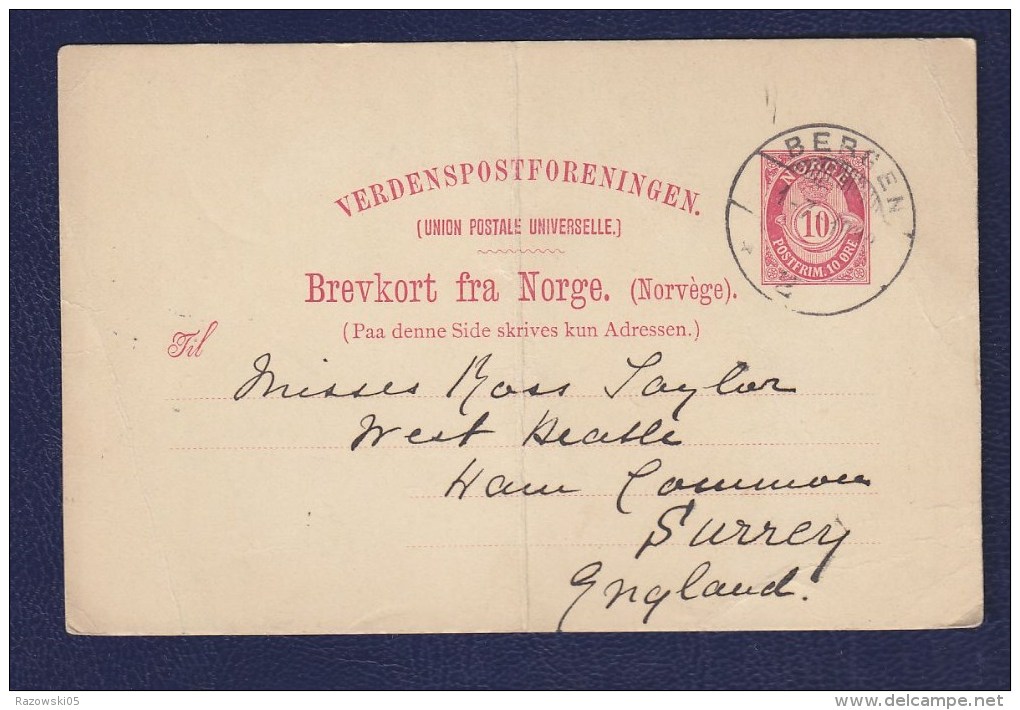 VERDENSPOSTFORENINGEN.
(UNION POSTALE UNIVERSELLE.)
Brevkort fra Norge. (Norvège).
(Paa denne Side skrives kun Adressen.)
BERGEN
10
POSTFRIM. 10 ØRE
Til
Misses Ross Taylor
West Heath
Ham Common
Surrey
England.
Razowski05
www.delcampe.net